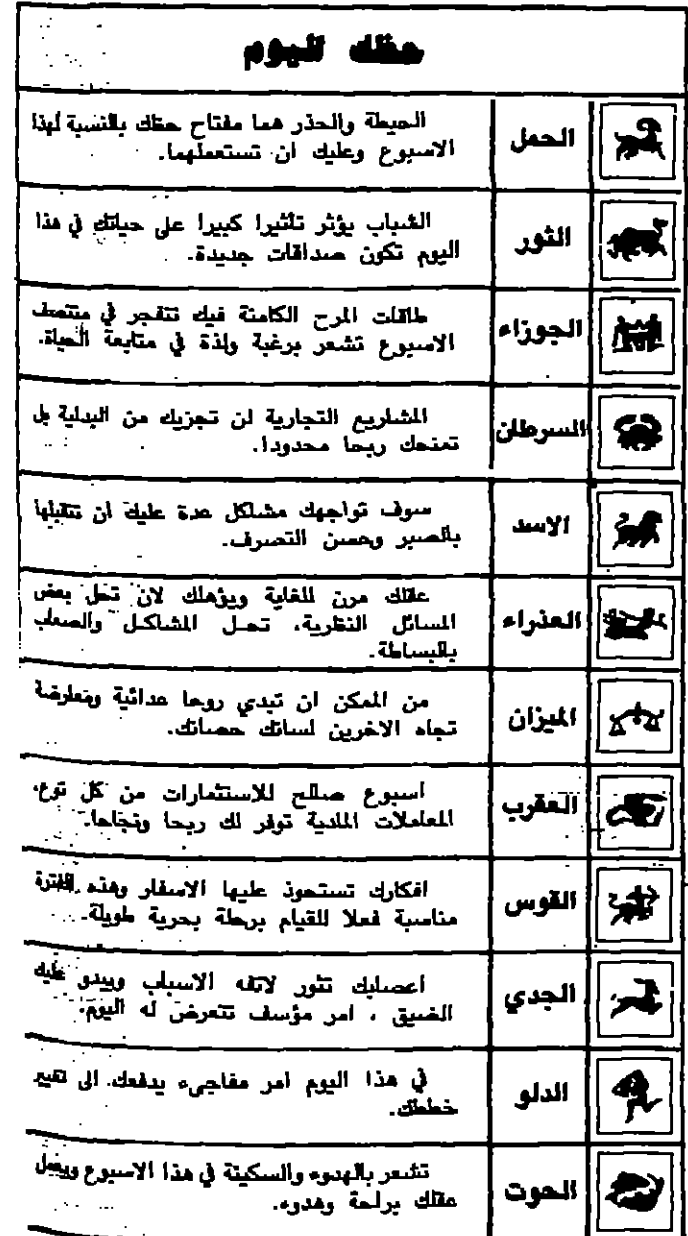 حظك اليوم
الحمل
الحيطة والحذر هما مفتاح حظك بالنسبة لهذا
الاسبوع وعليك ان تستعملهما.
الثور
الشباب يؤثر تأثيرا كبيرا على حياتك في هذا
اليوم تكون صداقات جديدة.
الجوزاء
طاقات المرح الكامنة فيك تتفجر في منتصف
الاسبوع تشعر برغبة ولذة في متابعة الحياة.
السرطان
المشاريع التجارية لن تجزيك من البداية بل
تمنحك ربحا محدودا.
الاسد
سوف تواجهك مشاكل عدة عليك ان تتقبلها
بالصبر وحسن التصرف.
العذراء
عقلك مرن للغاية ويؤهلك لان تحل بعض
المسائل النظرية، تحل المشاكل والصعاب
بالبساطة.
الميزان
من الممكن ان تبدي روحا عدائية ومعارضة
تجاه الاخرين لسانك حصانك.
العقرب
اسبوع صالح للاستثمارات من كل نوع،
المعاملات المادية توفر لك ربحا ونجاحا.
القوس
افكارك تستحوذ عليها الاسفار وهذه الفترة
مناسبة فعلا للقيام برحلة بحرية طويلة.
الجدي
اعصابك تثور لاتفه الاسباب ويبدو عليك
الضيق ، امر مؤسف تتعرض له اليوم.
الدلو
في هذا اليوم امر مفاجىء يدفعك الى تغيير
خططك.
الحوت
تشعر بالهدوء والسكينة في هذا الاسبوع ويعمل
عقلك براحة وهدوء.